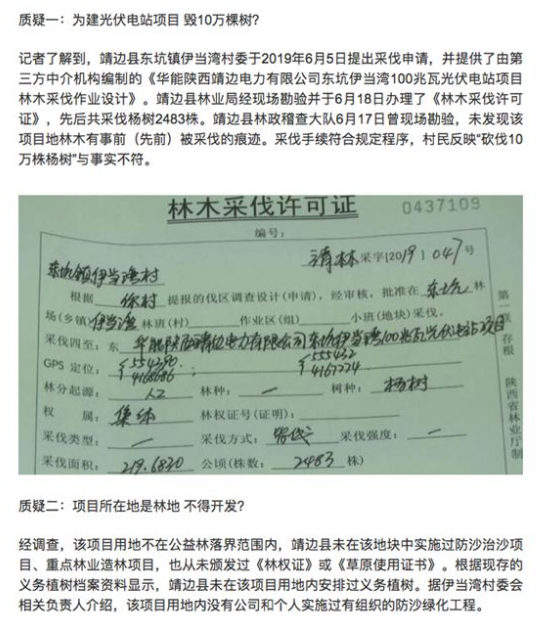 质疑一：为建光伏电站项目 毁10万棵树?
记者了解到，靖边县东坑镇伊当湾村委于2019年6月5日提出采伐申请，并提供了由第
三方中介机构编制的《华能陕西靖边电力有限公司东坑伊当湾100兆瓦光伏电站项目
林木采伐作业设计》。靖边县林业局经现场勘验并于6月18日办理了《林木采伐许可
证》，先后共采伐杨树2483株。靖边县林政稽查大队6月17日曾现场勘验，未发现该
项目地林木有事前（先前）被采伐的痕迹。采伐手续符合规定程序，村民反映“砍伐10
万株杨树”与事实不符。
林木采伐许可证 0437109
编号：
靖林采字[2019]047号
东坑镇伊当湾村
根据 你村 提报的伐区调查设计(申请)，经审核，批准在 东坑 林
场(乡镇) 伊当湾 林班(村) 作业区(组) 小班(地块)采伐。
采伐四至：东 华能陕西靖边电力有限公司东坑伊当湾100兆瓦光伏电站项目
GPS 定位：
林分起源：人工 林种：— 树种：杨树
权 属：集体 林权证号(证明)：
采伐类型：— 采伐方式：皆伐 采伐强度：—
采伐面积：219.6830 公顷(株数：2483 株)
第一联存根 陕西省林业厅制
质疑二：项目所在地是林地 不得开发?
经调查，该项目用地不在公益林落界范围内，靖边县未在该地块中实施过防沙治沙项
目、重点林业造林项目，也从未颁发过《林权证》或《草原使用证书》。根据现存的
义务植树档案资料显示，靖边县未在该项目用地内安排过义务植树。据伊当湾村委会
相关负责人介绍，该项目用地内没有公司和个人实施过有组织的防沙绿化工程。